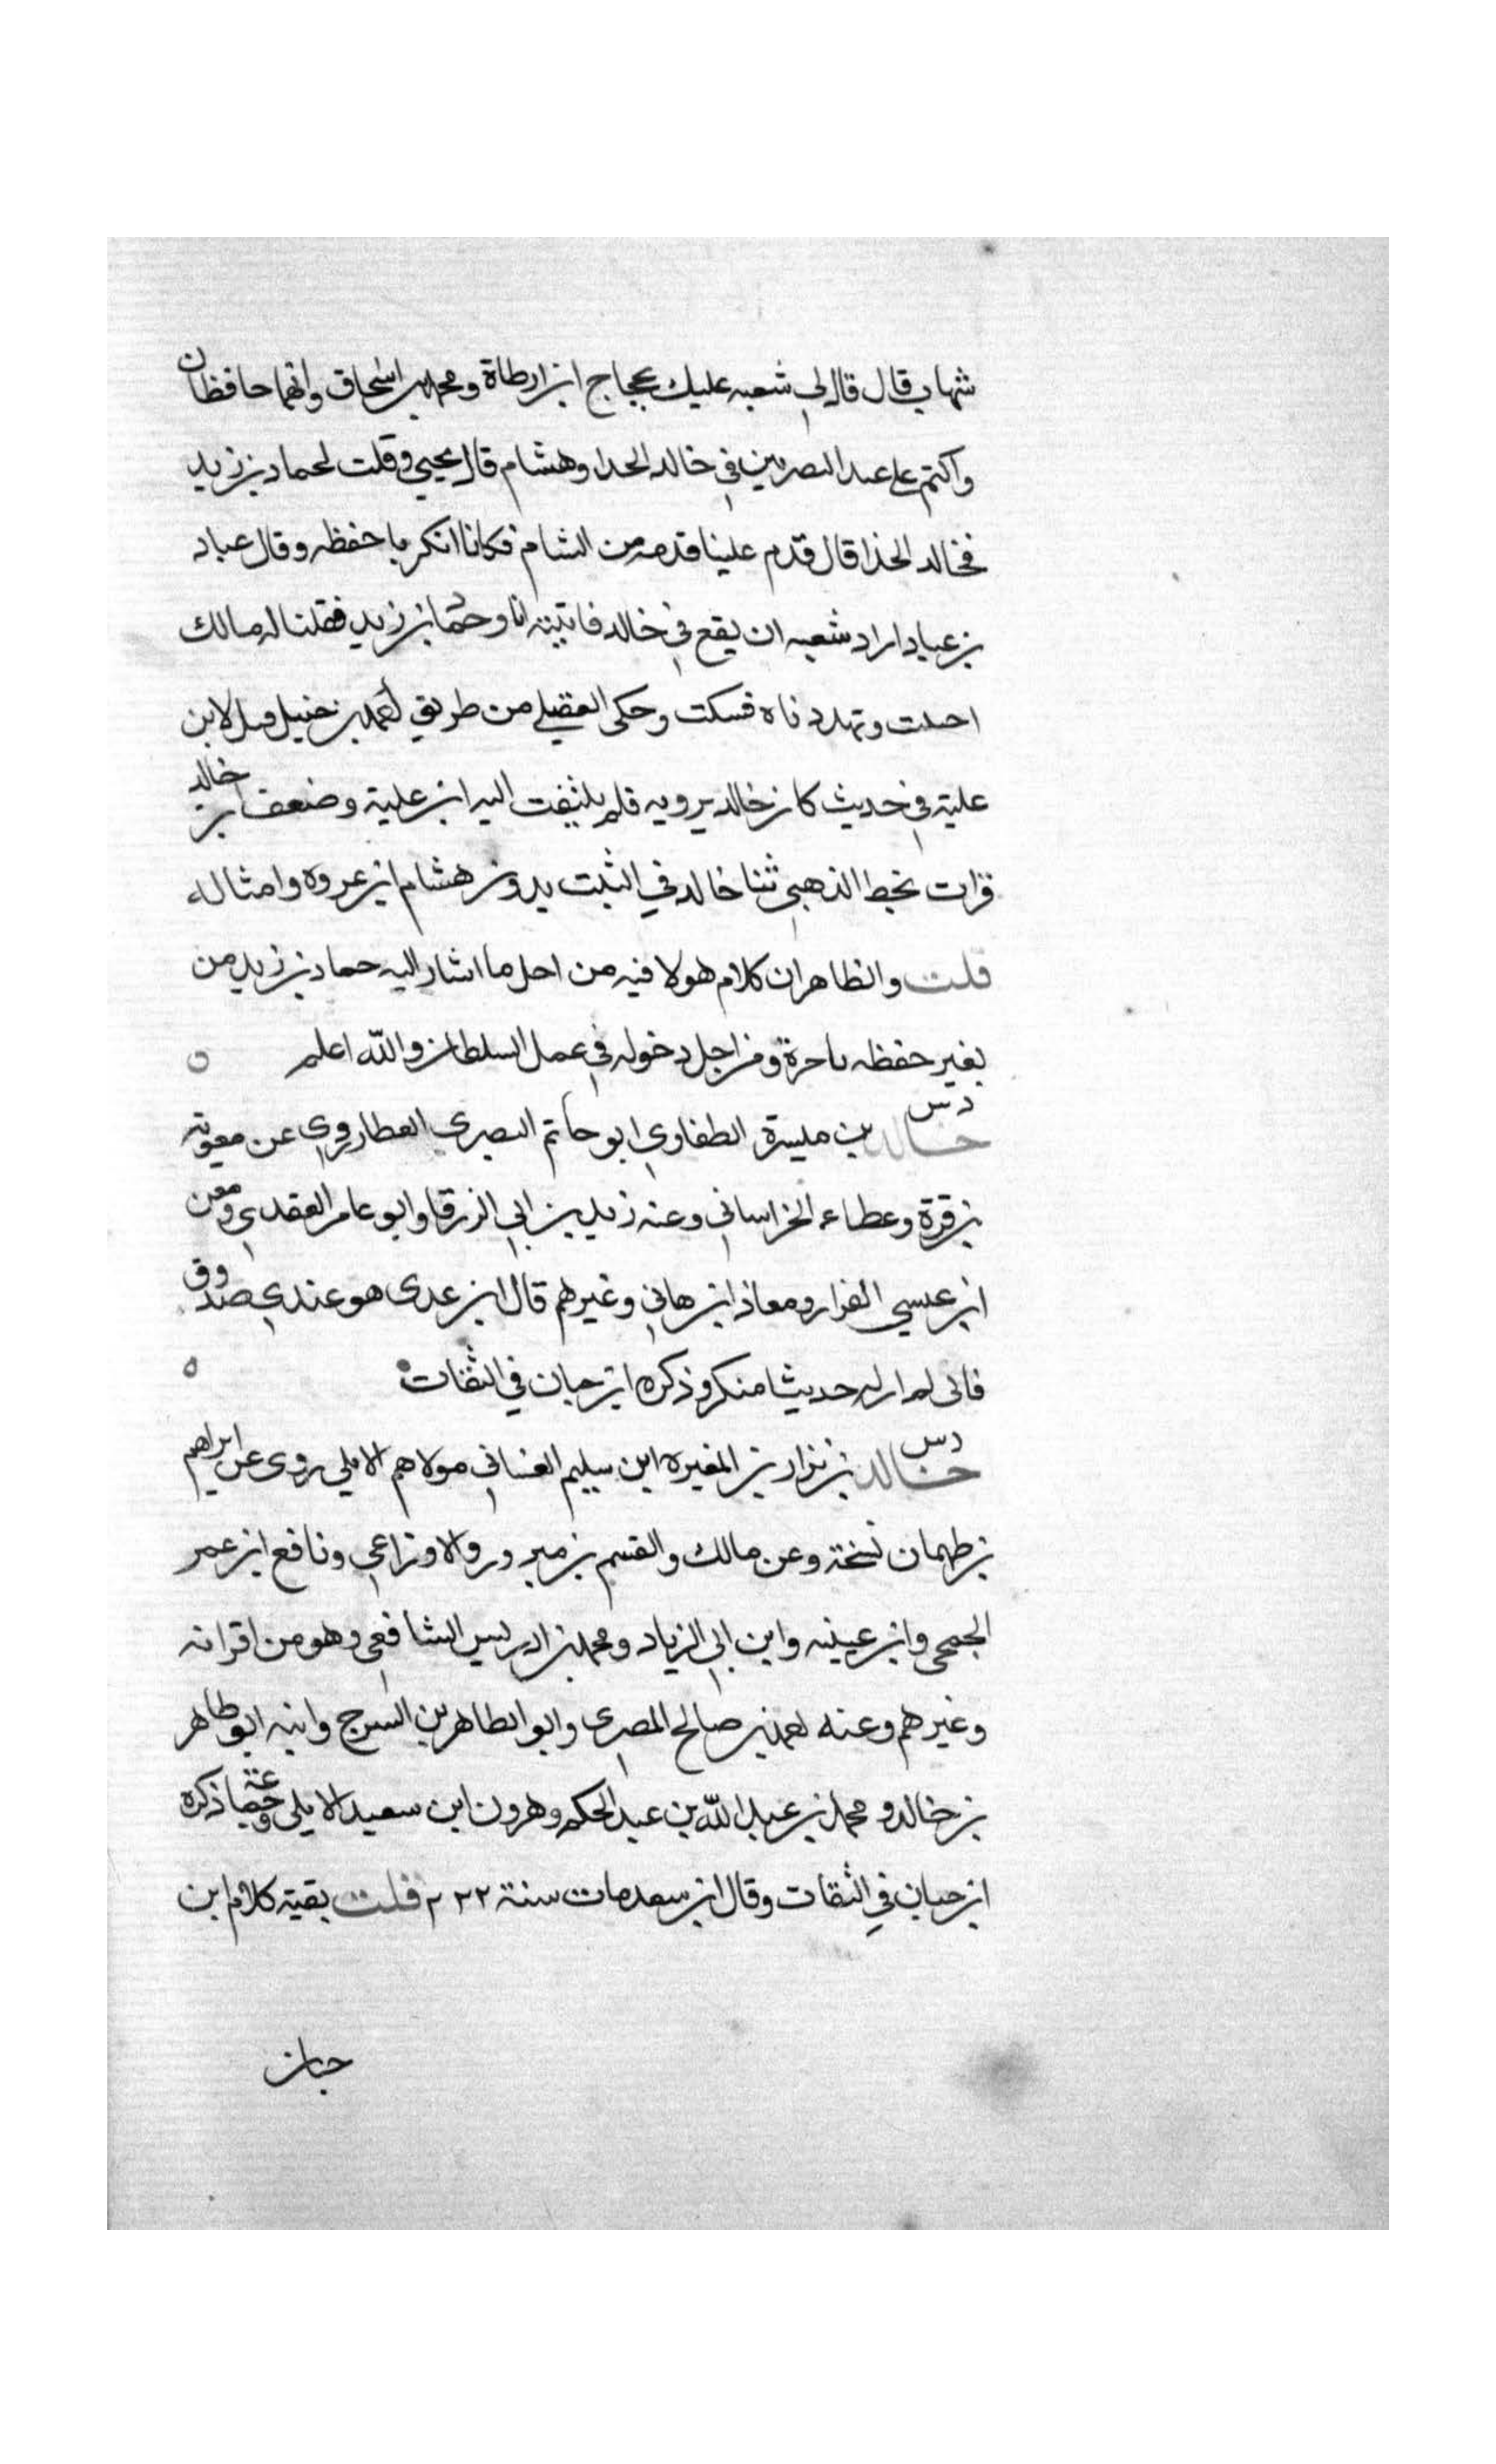 شهاب قال قال لي شعبه عليك بحجاج ابن ارطاة ومحمد بن اسحاق وانهما حافظان
واكتم علي عند البصريين في خالد الحذا وهشام قال يحيي وقلت لحماد بن زيد
فخالد الحذا قال قدم علينا قدمه من الشام فكانا انكر نا حفظه وقال عباد
بن عباد اراد شعبه ان يقع في خالد فاتيته انا وحماد بن زيد فقلنا له مالك
اجننت وتهددناه فسكت وحكي العقيلي من طريق احمد بن حنبل قيل لابن
علية في حديث كان خالد يرويه فلم يلتفت اليه ابن علية وضعف خالد
قرات بخط الذهبي ثنا خالد في الثبت بدون هشام ابن عروه وامثاله
قلت والظاهر ان كلام هولا فيه من اجل ما اشار اليه حماد بن زيد من
بغير حفظه باخرة ومن اجل دخوله في عمل السلطان والله اعلم ٥
دس
خالد بن ميسرة الطفاوي ابو حاتم البصري العطار روي عن معوية
بن قرة وعطاء الخراساني وعنه زيد بن ابي الزرقا وابو عامر العقدي ومعن
ابن عيسي القزاز ومعاذ ابن هاني وغيرهم قال ابن عدى هو عندي صدوق
فانى لم ار له حديثا منكر وذكره ابن حبان في الثقات ٥
دس
خالد بن نزار بن المغيره ابن سليم الغساني مولاهم الايلي روى عن ابراهيم
بن طهمان نسخة وعن مالك والقسم بن مبرور والاوزاعي ونافع ابن عمر
الجمحي وابن عيينه وابن ابي الزياد ومحمد بن ادريس الشافعي وهو من اقرانه
وغيرهم وعنه احمد بن صالح المصرى وابو الطاهر بن السرح وابنه ابو طاهر
بن خالد ومحمد بن عبد الله بن عبد الحكم وهرون ابن سعيد الايلي وجماعة ذكره
ابن حبان في الثقات وقال ابن سعد مات سنة ٢٢٢ قلت بقية كلام ابن
حبان